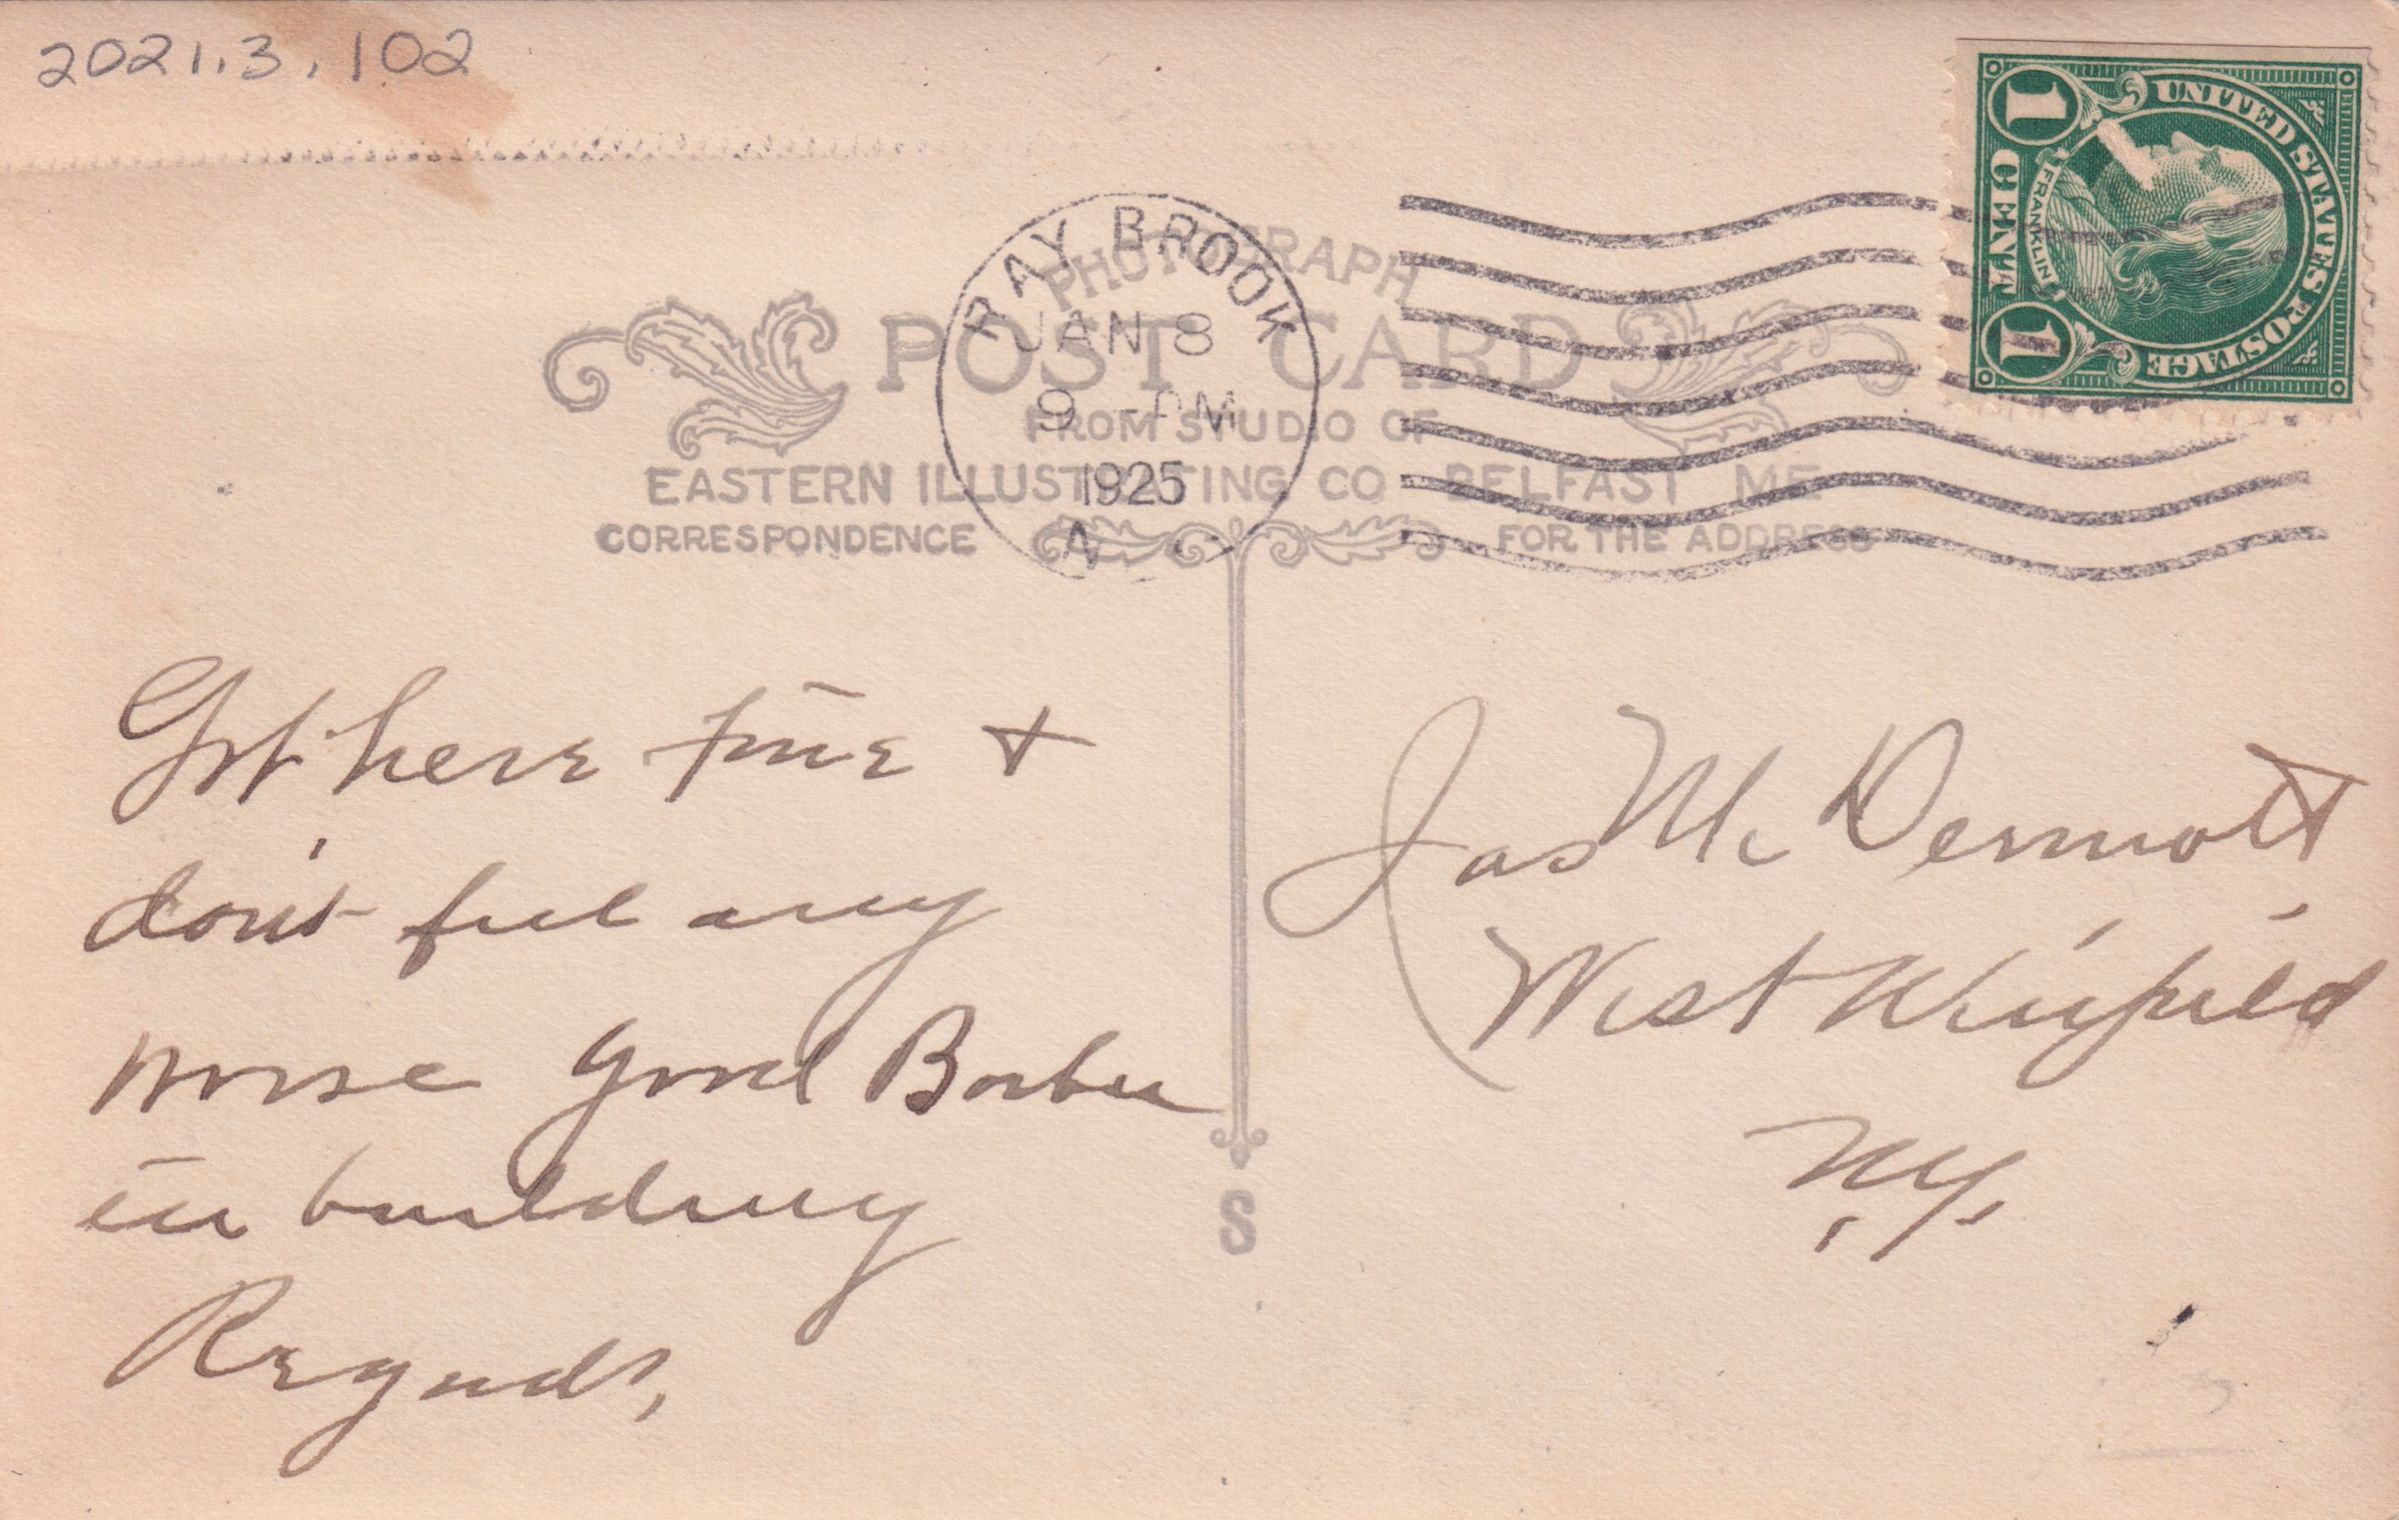 2021.3.102
UNITED STATES POSTAGE
FRANKLIN
1 CENT 1
RAY BROOK
JAN 8
9 - PM
1925
N
PHOTOGRAPH
POST CARD
FROM STUDIO OF
EASTERN ILLUSTRATING CO BELFAST ME
CORRESPONDENCE
FOR THE ADDRESS
Got here fine +
don't feel any
worse good Barber
in building
Regards,
Jas McDermott
West Winfield
N.Y.
S